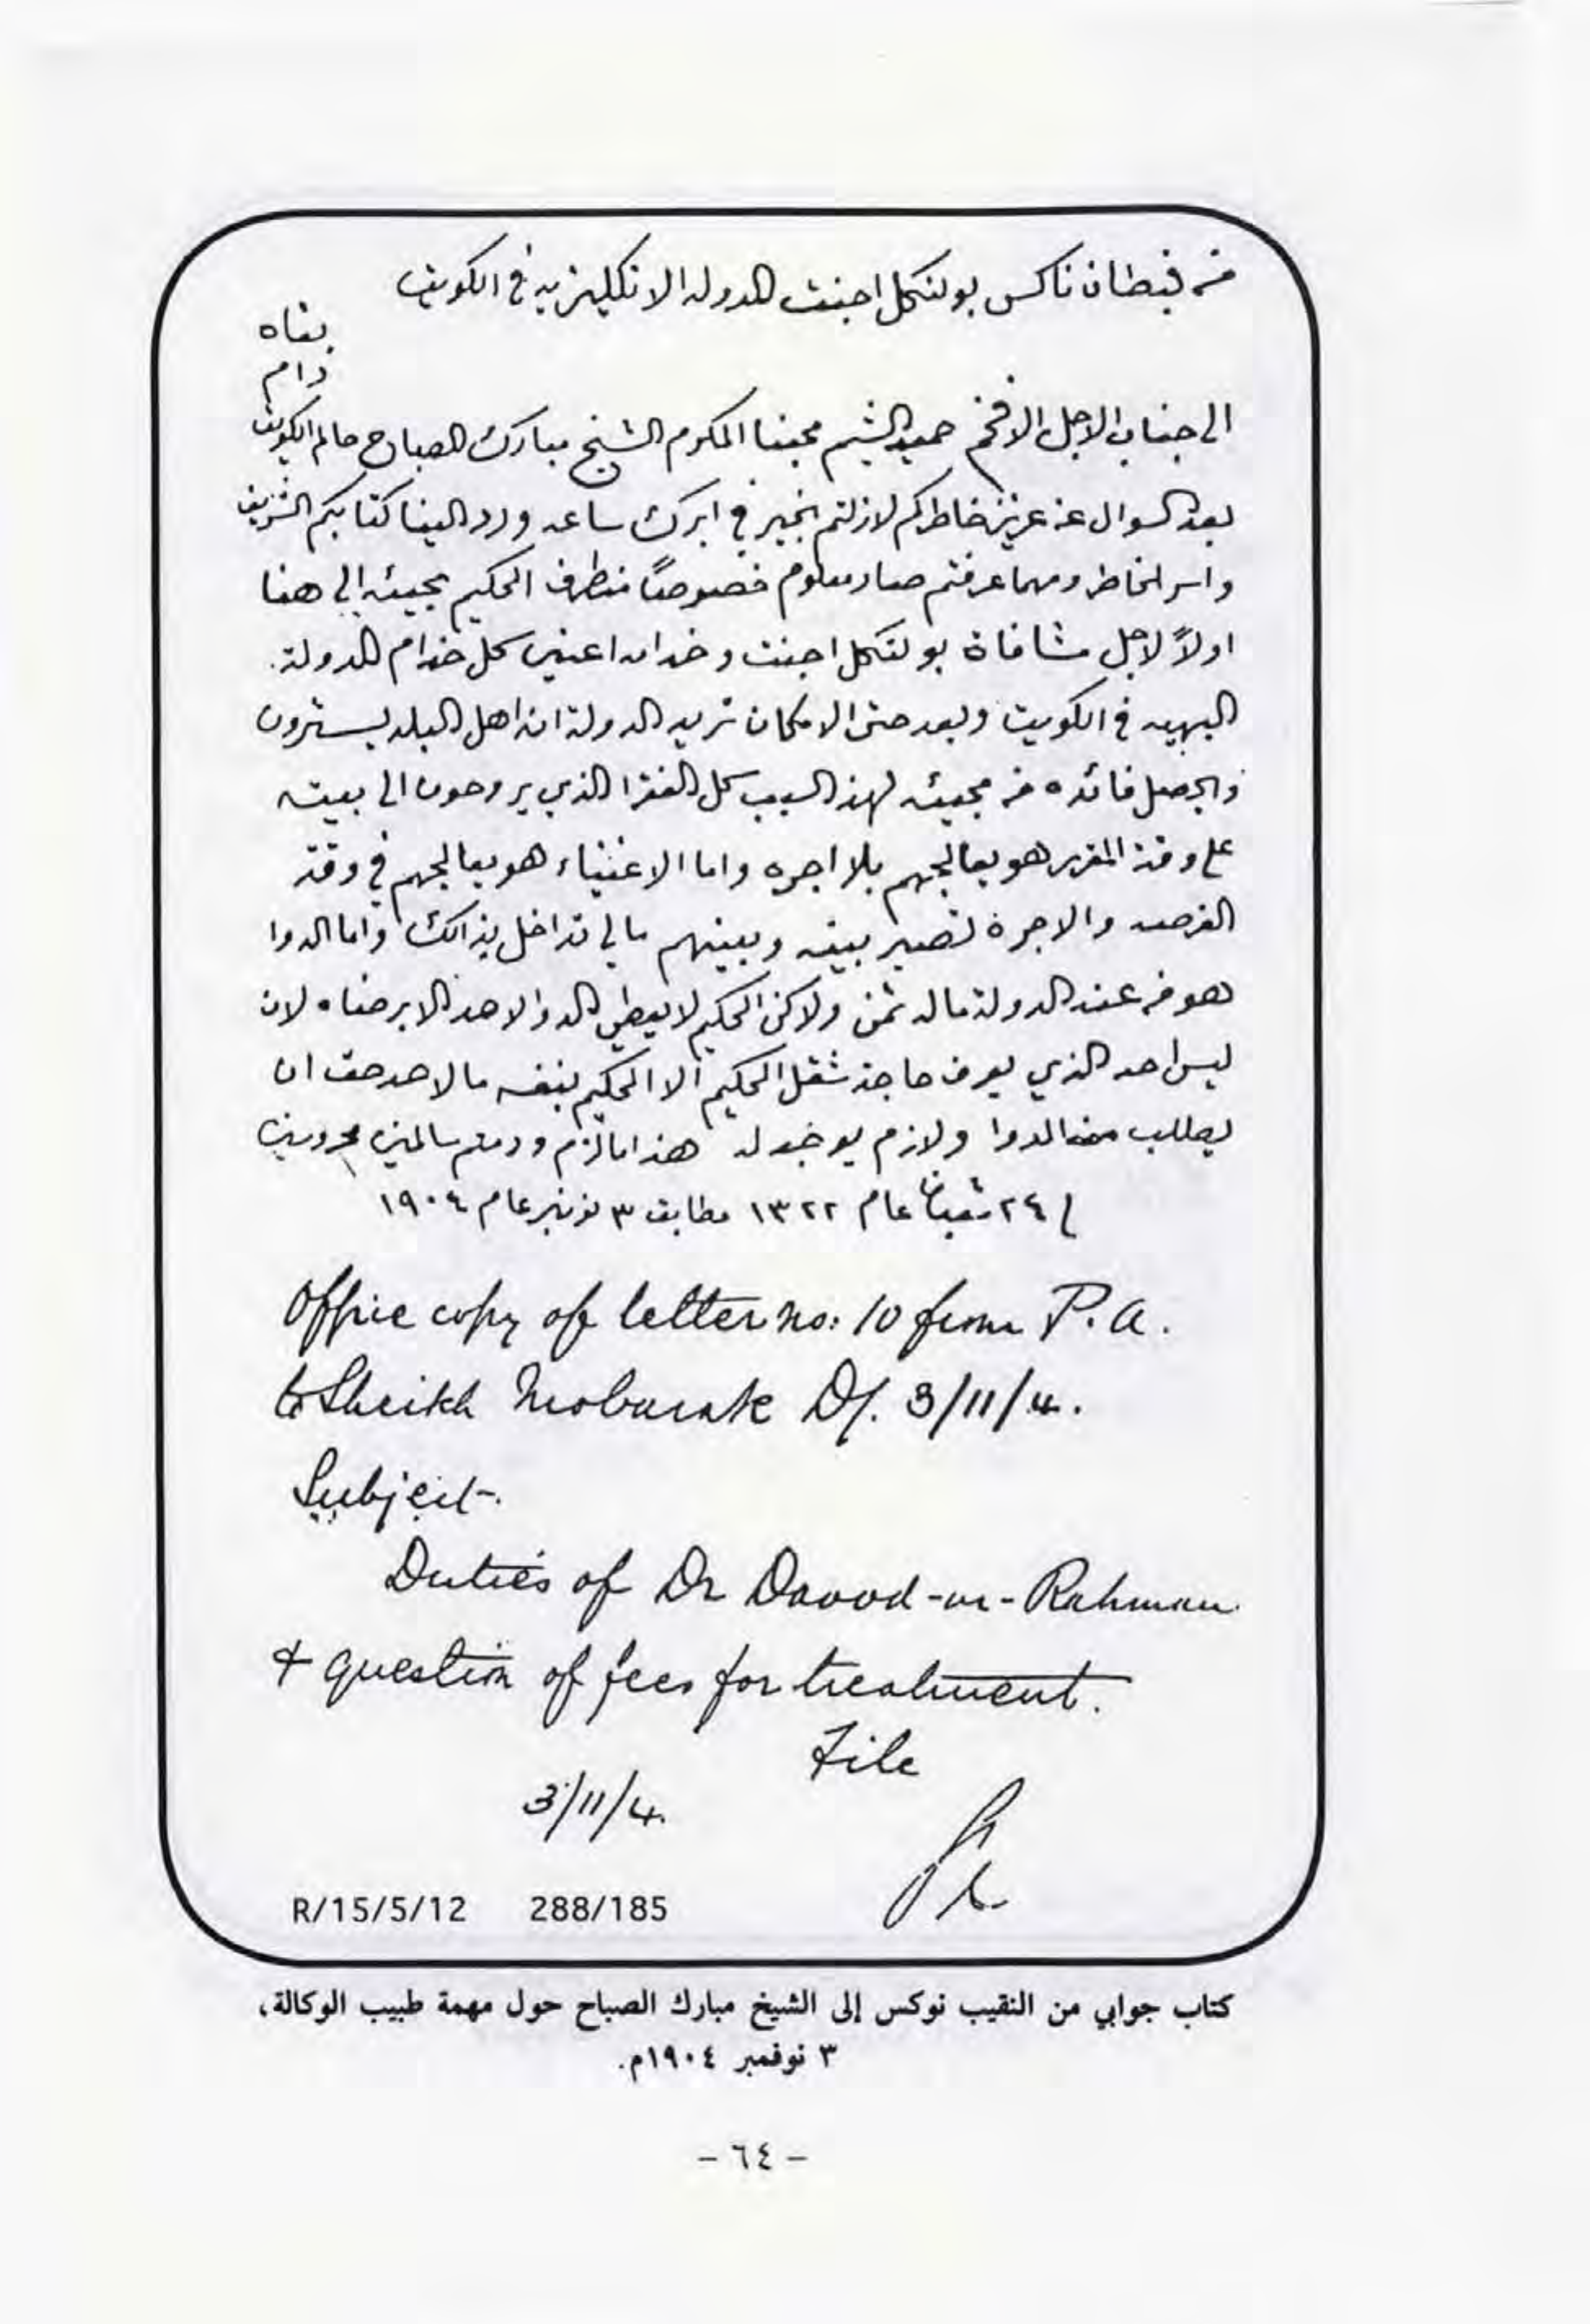 من قبطان ناكس بولتكل اجنت الدوله الانكليزيه في الكويت
بقاه
دام
الى جناب الاجل الافخم حميد الشيم محبنا المكرم الشيخ مبارك الصباح حاكم الكويت
بعد السوال عن عزيز خاطركم لازلتم بخير في ابرك ساعه ورد الينا كتابكم الشريف
واسر الخاطر ومهما عرفتم صار معلوم خصوصاً منطرف الحكيم بجيئه الى هنا
اولاً لاجل مشافاة بولتكل اجنت وخدامه اعني كل خدام الدولة
البهيه في الكويت وبعد حتى الامكان تريد الدولة ان اهل البلد يسترون
ويحصل فائده من مجيئه لهذ السبب كل الفقرا الذي يروحون الى بيته
على وقت المقرر هو يعالجهم بلا اجره واما الاغنياء هو يعالجهم في وقت
الفرصه والاجرة تصير بينه وبينهم مالي تداخل بذالك واما الدوا
هو من عند الدولة ماله ثمن ولاكن الحكيم لا يعطي الدوا لاحد الا برضاه لان
ليس احد الذي يعرف حاجة شغل الحكيم الا الحكيم بنفسه ما لاحد حق ان
يطلب منه الدوا ولازم يوخد له هذا مالزم ودمتم سالمين محروسين
٢٤ شعبان عام ١٣٢٢ مطابق ٣ نونبر عام ١٩٠٤
Office copy of letter no: 10 from P.A.
to Sheikh Mobarak D/. 3/11/4.
Subject-.
Duties of Dr Daood-ur-Rahman
& question of fees for treatment.
File
3/11/4.
R/15/5/12 288/185
كتاب جوابي من النقيب نوكس إلى الشيخ مبارك الصباح حول مهمة طبيب الوكالة،
٣ نوفمبر ١٩٠٤م.
- ٦٤ -